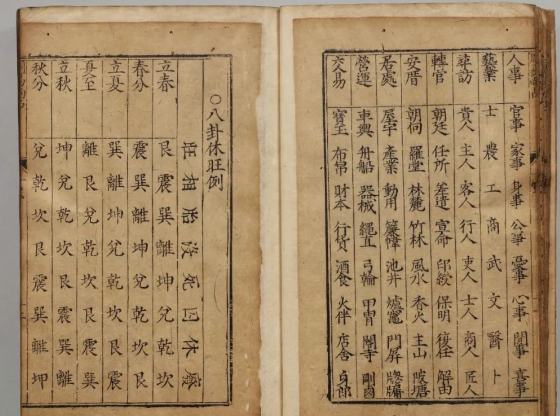 人事 官事 家事 身事 公事 憂事 心事 閒事 喜事
藝業 士 農 工 商 武 文 醫 卜
訪 貴人 主人 客人 行人 吏人 士人 商人 匠人
轉官 朝廷 任所 差遣 宣命 印綬 保明 復任 解由
安厝 朝向 林麓 竹林 風水 香火 主山 陂塘
居處 屋宇 產業 動用 簾幃 池井 爐竈 門屏
營運 車輿 舟船 器械 繩直 弓輪 甲冑 閽寺
交易 寶玉 布帛 財本 行貨 酒食 火伴 店舍
○八卦休旺例
旺 相 胎 沒 死 囚 休 廢
立春 艮 震 巽 離 坤 兌 乾 坎
春分 震 巽 離 坤 兌 乾 坎 艮
立夏 巽 離 坤 兌 乾 坎 艮 震
夏至 離 艮 兌 乾 坎 艮 震 巽
立秋 坤 兌 乾 坎 艮 震 巽 離
秋分 兌 乾 坎 艮 震 巽 離 坤